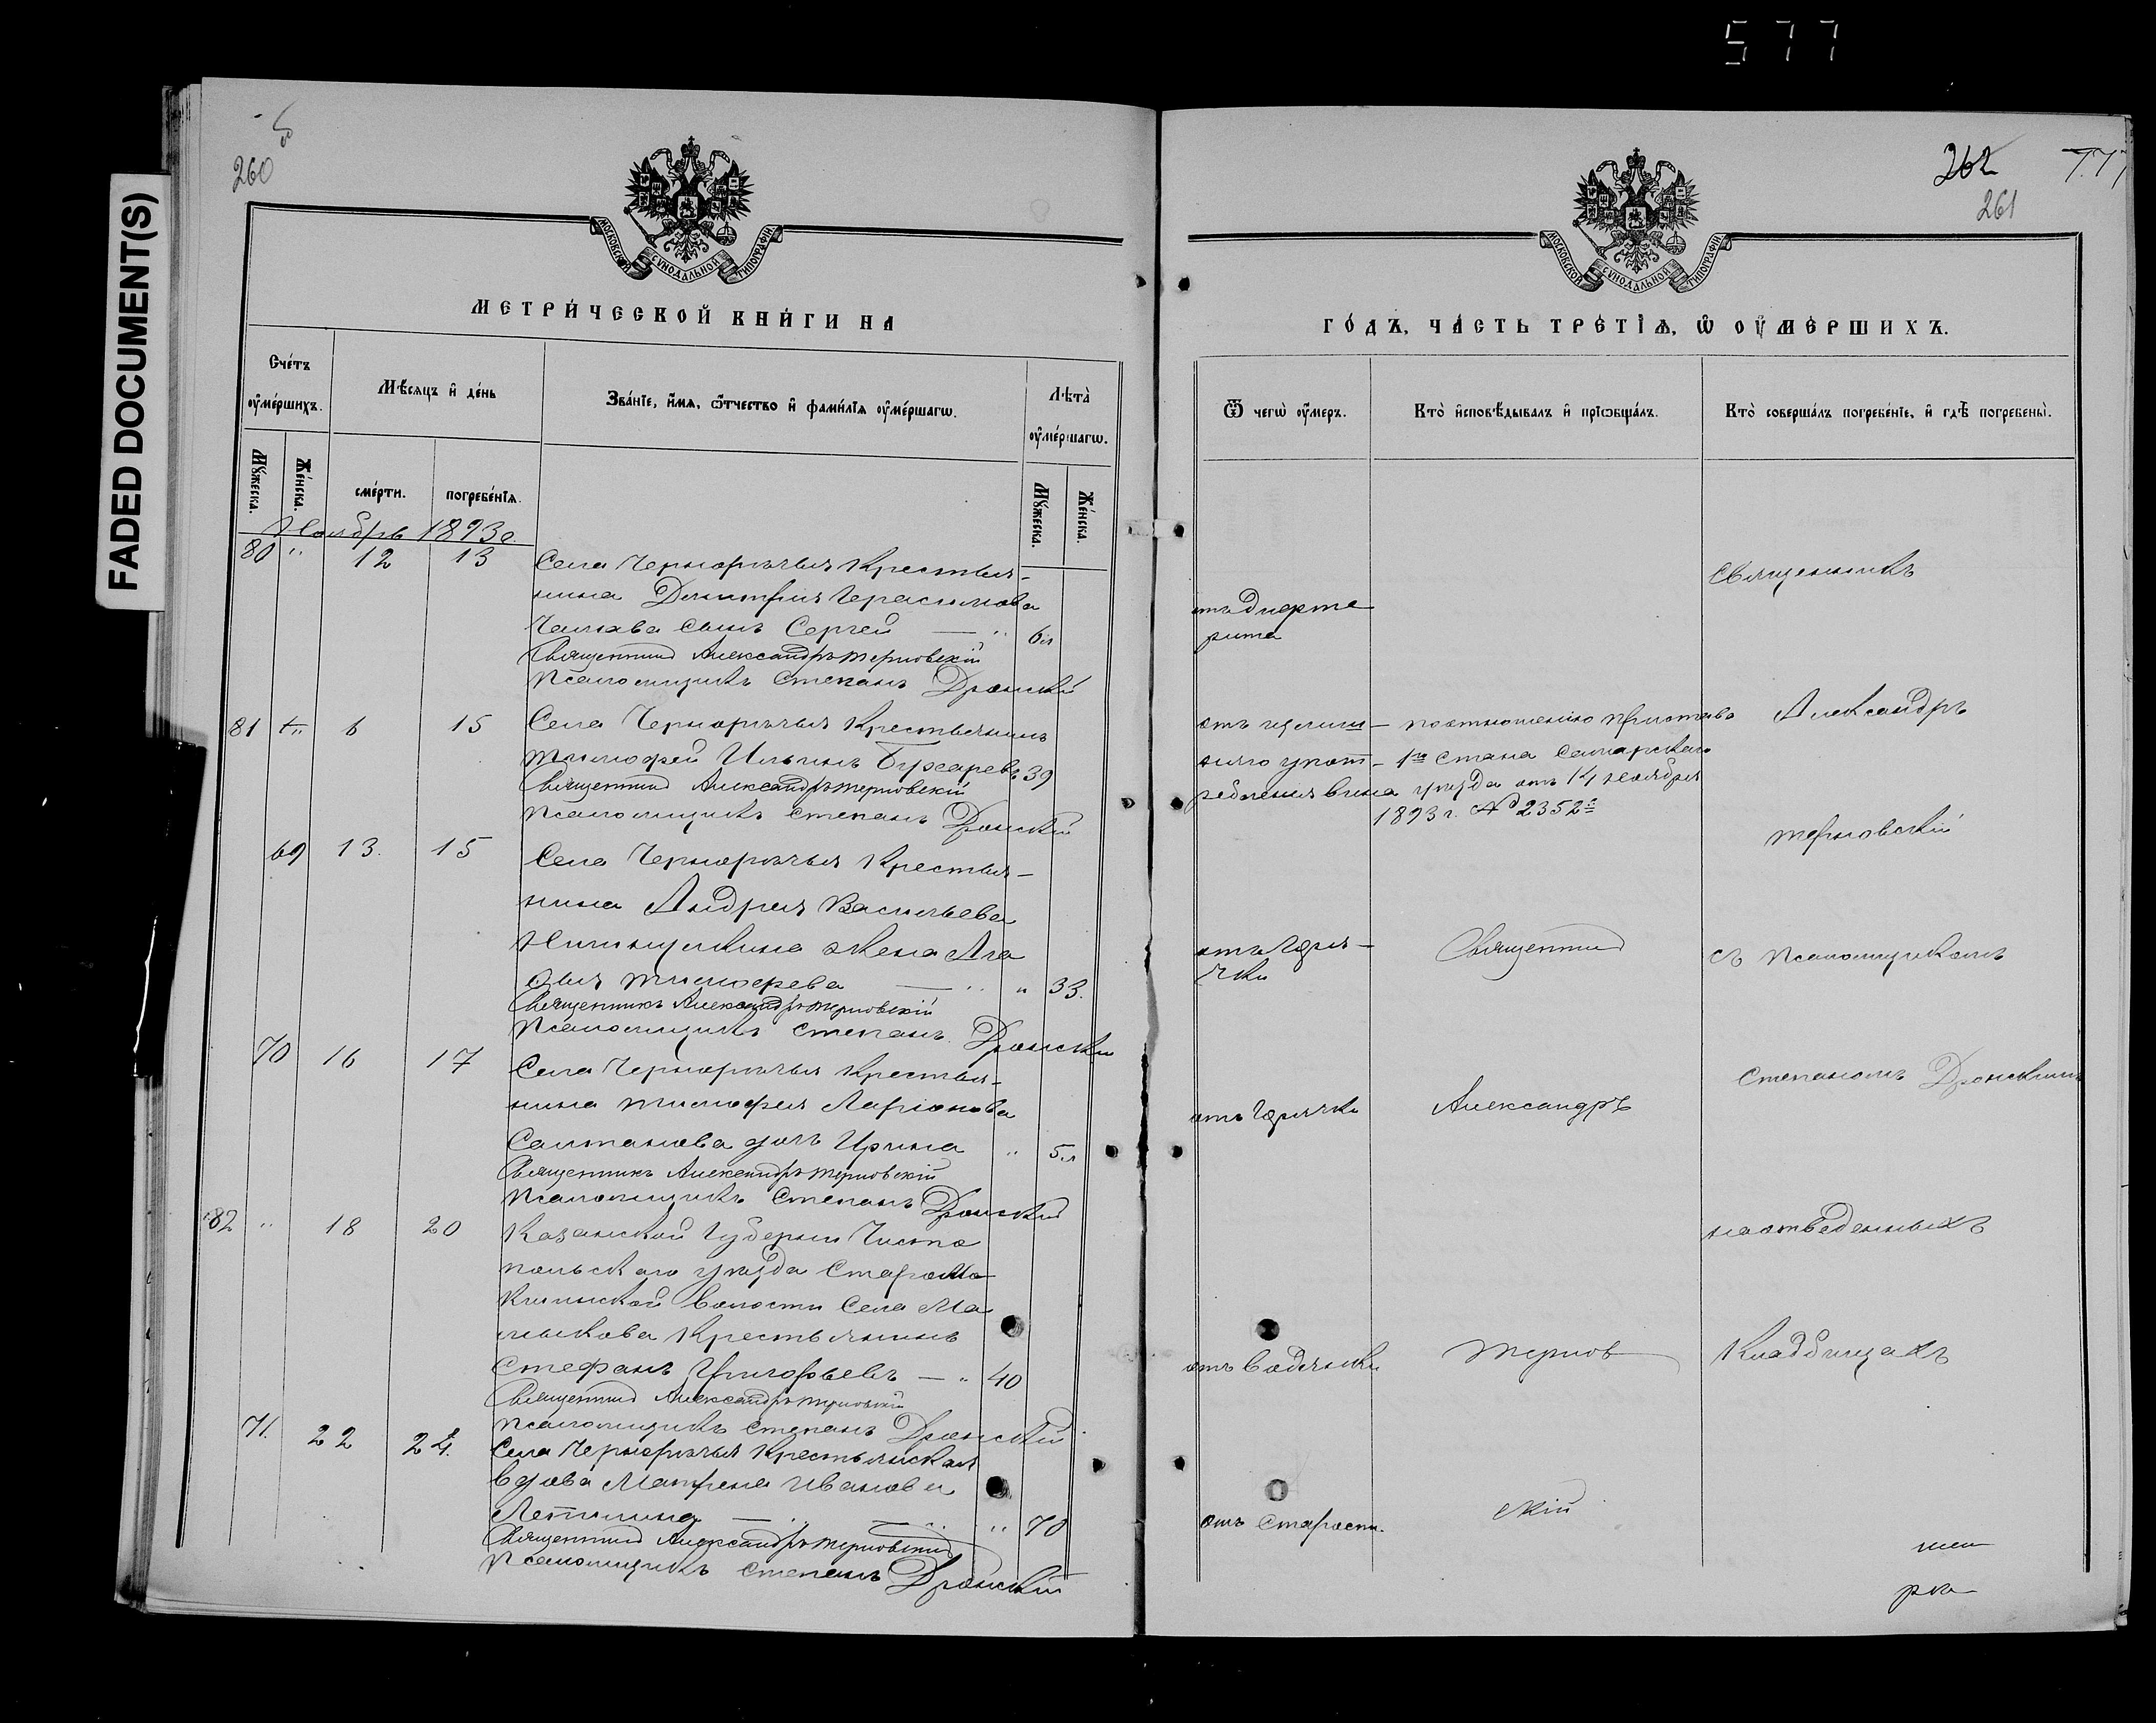 577
FADED DOCUMENT(S)
260
МОСКОВСКОЙ СУНОДАЛЬНОЙ ТИПОГРАФІИ
МЕТРИ́ЧЕСКОЙ КНИ́ГИ НА
Сче́тъ ѹ҆ме́ршихъ.
Мѣ́сяцъ и҆ де́нь
Зва́нїе, и҆́мѧ, ѻ҆́тчество и҆ фами́лїѧ ѹ҆ме́ршагѡ.
Лѣ́та ѹ҆ме́ршагѡ.
Мꙋ́жеска.
Же́нска.
сме́рти.
погребе́нїѧ.
Мꙋ́жеска.
Же́нска.
Ноябрь 1893 г.
80 " 12 13 Села Чернорѣчья Крестья-
нина Димитрия Герасимова
сынъ Сергей — " 6 л
Священник Александръ Терновскій
Псаломщикъ Степанъ Дронскій
81 6 15 Села Чернорѣчья Крестьянинъ
Тимофей Ильинъ 39
Священник Александръ Терновскій
Псаломщикъ Степанъ Дронскій
69 13. 15 Села Чернорѣчья Крестья-
нина Андрея Васильева
жена Ага
фия Тимофева — " " 33.
Священникъ Александръ Терновскій
Псаломщикъ Степанъ Дронскій
70 16 17 Села Чернорѣчья Крестья-
нина Тимофея Ларіонова
Салтанова дочь Ирина " 5 л
Священникъ Александръ Терновскій
Псаломщикъ Степанъ Дронскій
82 " 18 20 Казанской Губернии Чисто
польскаго уѣзда Старомо
кшинской волости Села Ма
мыкова Крестьянинъ
Стефанъ Григорьевъ — " 40
Священник Александръ Терновскій
Псаломщикъ Степанъ Дронскій
71. 22 24. Села Чернорѣчья Крестьянская
вдова Матрена Иванова
— " — " " 70
Священник Александръ Терновскій
Псаломщикъ Степанъ Дронскій
262
261
МОСКОВСКОЙ СУНОДАЛЬНОЙ ТИПОГРАФІИ
ГО́ДЪ, ЧА́СТЬ ТРЕ́ТЇѦ, Ѡ҆ ОУ҆МЕ́РШИХЪ.
Ѿ чегѡ̀ ѹ҆́меръ.
Кто̀ и҆сповѣ́дывалъ и҆ прїѡбща́лъ.
Кто̀ соверша́лъ погребе́нїе, и҆ гдѣ̀ погребены̀.
отъ диフте
рита
Священникъ
отъ излиш- по отношению Пристава
няго упот- 1го стана Самарскаго
ребления вина уѣзда отъ 14 ноября
1893 г. № 2352й
Александръ
Терновскій
отъ горя-
чки
Священник
съ Псаломщикомъ
отъ горячки
Александръ
Степаномъ Дронскимъ
на отведенныхъ
отъ водянки
Тернов
Кладбищахъ
отъ старости.
скій